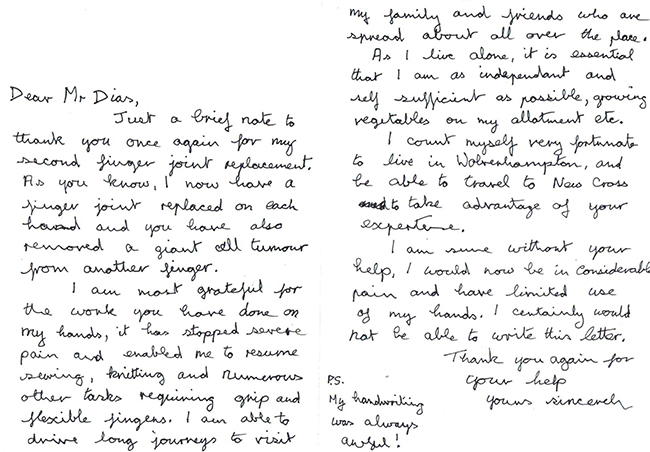 Dear Mr Dias,
Just a brief note to
thank you once again for my
second finger joint replacement.
As you know, I now have a
finger joint replaced on each
hand and you have also
removed a giant cell tumour
from another finger.
I am most grateful for
the work you have done on
my hands, it has stopped severe
pain and enabled me to resume
sewing, knitting and numerous
other tasks requiring grip and
flexible fingers. I am able to
drive long journeys to visit
my family and friends who are
spread about all over the place.
As I live alone, it is essential
that I am as independant and
self sufficient as possible, growing
vegetables on my allotment etc.
I count myself very fortunate
to live in Wolverhampton, and
be able to travel to New Cross
to take advantage of your
expertene.
I am sure without your
help, I would now be in considerable
pain and have limited use
of my hands. I certainly would
not be able to write this letter.
Thank you again for
your help
yours sincerely
P.S.
My handwriting
was always
awful!